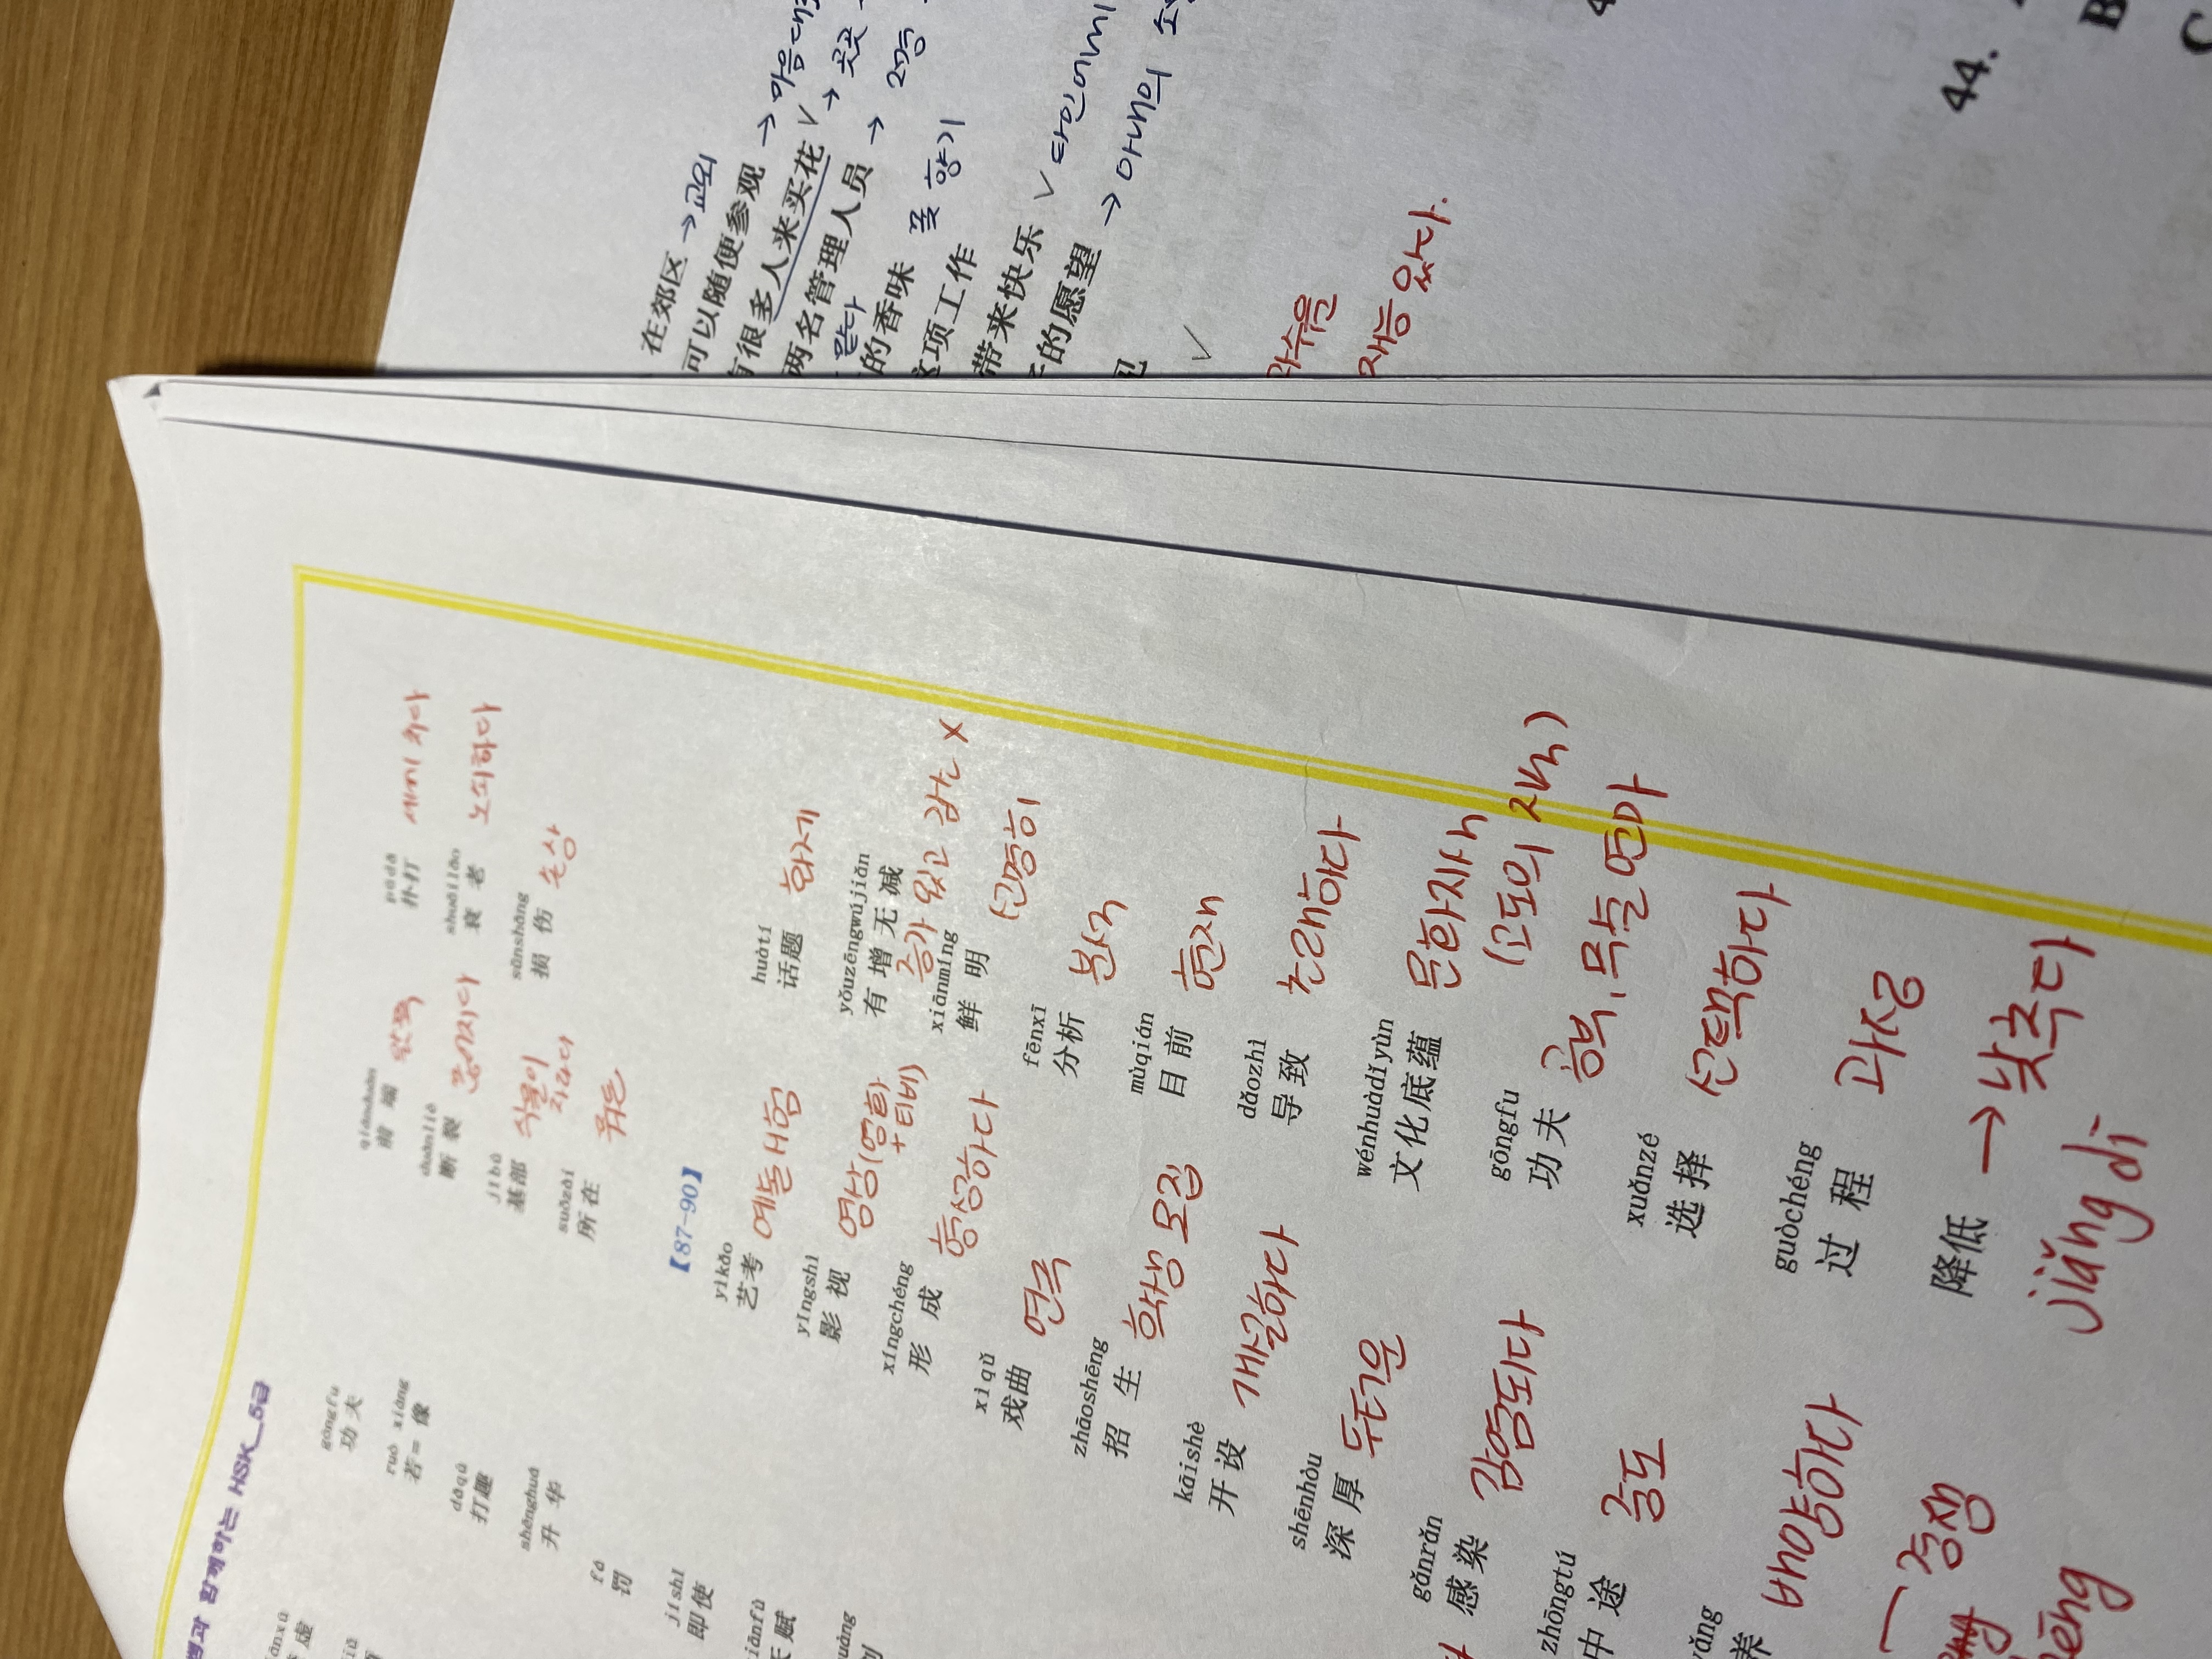 在郊区 → 교외
可以随便参观 → 마음대
有很多人来买花 ✓ → 곳곳
两名管理人员 →
맡다
的香味 꽃 향기
这项工作
带来快乐 ✓ 타인에게
子的愿望 → 아내의
✓
재능 있다.
44.
B
C
함께하는 HSK_5급
gōngfu
功夫
ruò xiàng
若=像
dǎqù
打趣
shēnghuá
升华
fá
罚
jíshǐ
即使
赋
qiánduān
前端 앞쪽
duànliè
断裂 끊어지다
jībù
基部 식물이 자라다
suǒzài
所在
pūdǎ
扑打 세게 치다
shuāilǎo
衰老 노쇠하다
sǔnshāng
损伤 손상
【87-90】
yìkǎo
艺考 예술시험
yǐngshì
影视 영상(영화+티비)
xíngchéng
形成 형성하다
xìqǔ
戏曲 연극
zhāoshēng
招生 학생 모집
kāishè
开设 개설하다
shēnhòu
深厚 두터운
gǎnrǎn
感染 감염되다
zhōngtú
中途 중도
养 배양하다
경쟁
huàtí
话题 화제
yǒuzēngwújiǎn
有增无减 증가 있고 감소 X
xiānmíng
鲜明 선명히
fēnxī
分析 분석
mùqián
目前 현재
dǎozhì
导致 초래하다
wénhuàdǐyùn
文化底蕴 문화지식
gōngfu
功夫 공부, 무술 연마
xuǎnzé
选择 선택하다
guòchéng
过程 과정
降低 → 낮추다
jiǎng dī